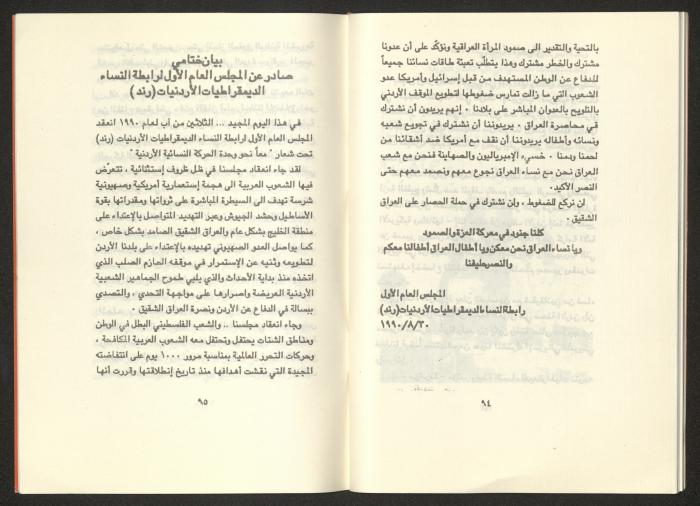 بالتحية والتقدير الى صمود المرأة العراقية ونؤكّد على أن عدونا
مشترك والخطر مشترك وهذا يتطلّب تعبئة طاقات نسائنا جميعاً
للدفاع عن الوطن المستهدف من قبل إسرائيل وأمريكا عدو
الشعوب التي ما زالت تمارس ضغوطها لتطويع الموقف الأردني
بالتلويح بالعدوان المباشر على بلادنا . إنهم يريدون أن نشترك
في محاصرة العراق . يريدوننا أن نشترك في تجويع شعبه
ونسائه وأطفاله يريدوننا أن نقف مع أمريكا ضد أشقائنا من
لحمنا ودمنا . خسيء الإمبرياليون والصهاينة فنحن مع شعب
العراق نحن مع نساء العراق نجوع معهم ونصمد معهم حتى
النصر الأكيد .
لن نركع للضغوط ، ولن نشترك في حملة الحصار على العراق
الشقيق .
كلنا جنود في معركة العزة والصمود
ويا نساء العراق نحن معكن ويا أطفال العراق أطفالنا معكم
والنصر حليفنا
المجلس العام الأول
رابطة النساء الديمقراطيات الأردنيات (رند)
١٩٩٠/٨/٣٠
٩٤
بيان ختامي
صادر عن المجلس العام الأول لرابطة النساء
الديمقراطيات الأردنيات (رند)
في هذا اليوم المجيد ... الثلاثين من آب لعام ١٩٩٠ انعقد
المجلس العام الأول لرابطة النساء الديمقراطيات الأردنيات (رند)
تحت شعار " معاً نحو وحدة الحركة النسائية الأردنية "
لقد جاء انعقاد مجلسنا في ظل ظروف إستثنائية ، تتعرّض
فيها الشعوب العربية الى هجمة إستعمارية أمريكية وصهيونية
شرسة تهدف الى السيطرة المباشرة على ثرواتها ومقدراتها بقوة
الأساطيل وحشد الجيوش وعبر التهديد المتواصل بالإعتداء على
منطقة الخليج بشكل عام والعراق الشقيق الصامد بشكل خاص ،
كما يواصل العدو الصهيوني تهديده بالإعتداء على بلدنا الأردن
لتطويعه وثنيه عن الإستمرار في موقفه الحازم الصلب الذي
اتخذه منذ بداية الأحداث والذي يلبي طموح الجماهير الشعبية
الأردنية العريضة واصرارها على مواجهة التحدي ، والتصدي
ببسالة في الدفاع عن الأردن ونصرة العراق الشقيق .
وجاء انعقاد مجلسنا .. والشعب الفلسطيني البطل في الوطن
ومناطق الشتات يحتفل وتحتفل معه الشعوب العربية المكافحة ،
وحركات التحرر العالمية بمناسبة مرور ١٠٠٠ يوم على انتفاضته
المجيدة التي نقشت أهدافها منذ تاريخ إنطلاقتها وقررت أنها
٩٥